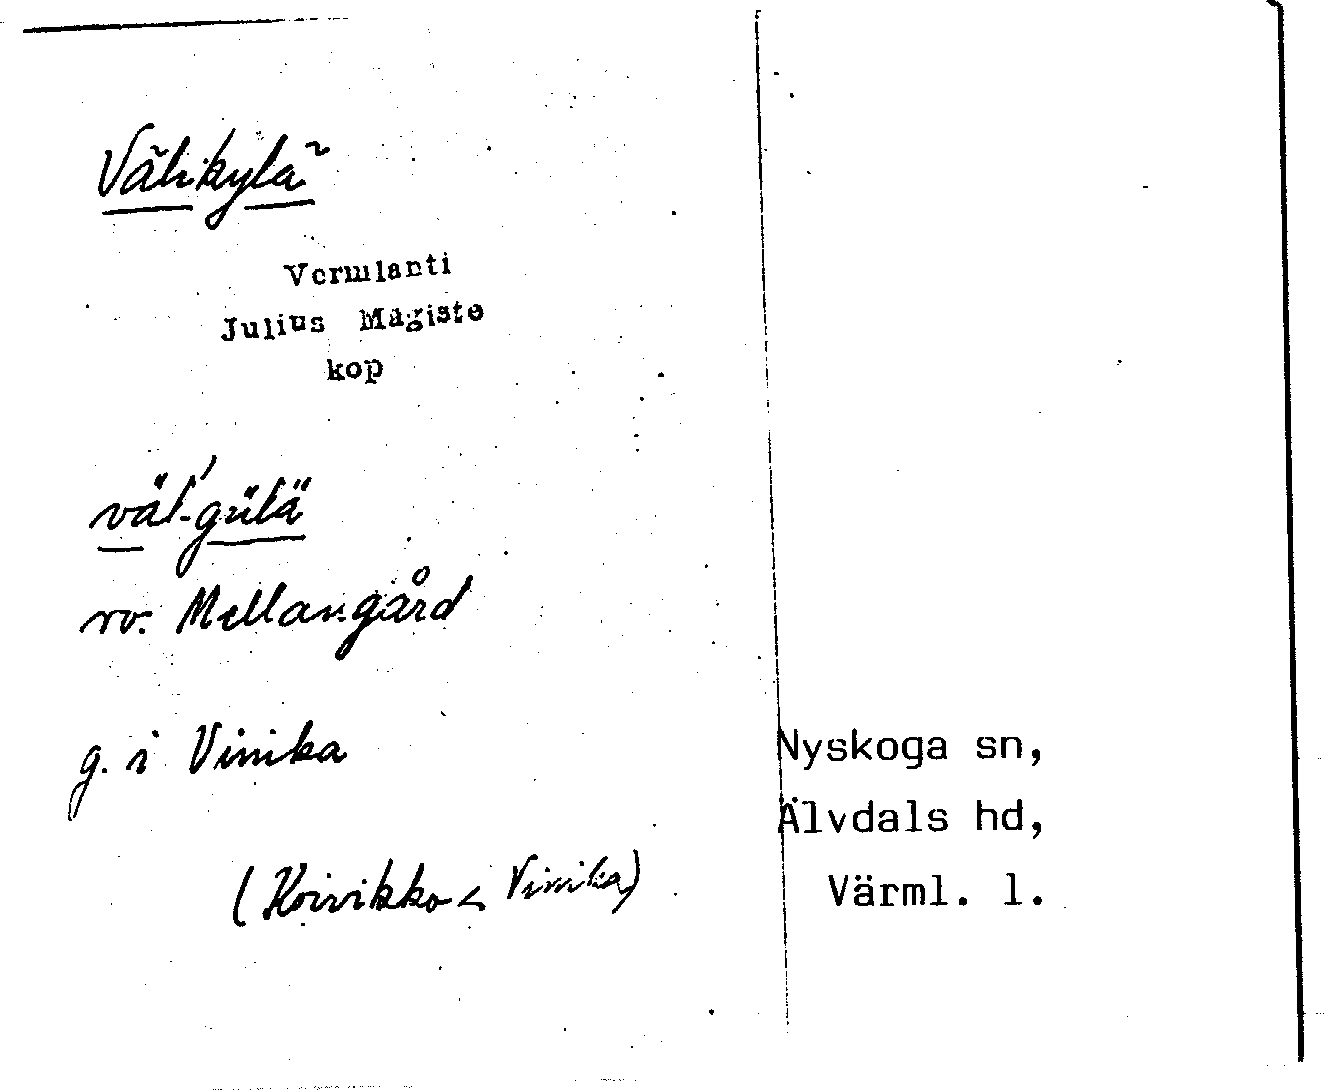 Välikylä
Vermlanti
Julius Mägiste
kop
väl'-gülä
rv. Mellangård
g. i Vinika
(Koivikko < Vinika)
Nyskoga sn,
Älvdals hd,
Värml. l.